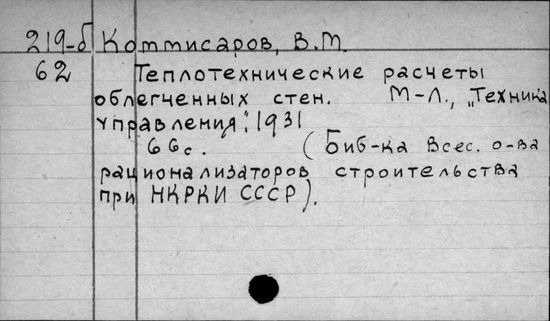 219-б Коммисаров, В.М.
62 Теплотехнические расчеты
облегченных стен. М-Л., „Техника
управления". 1931
66с. (Биб-ка Всес. о-ва
рационализаторов строительства
при НКРКИ СССР).